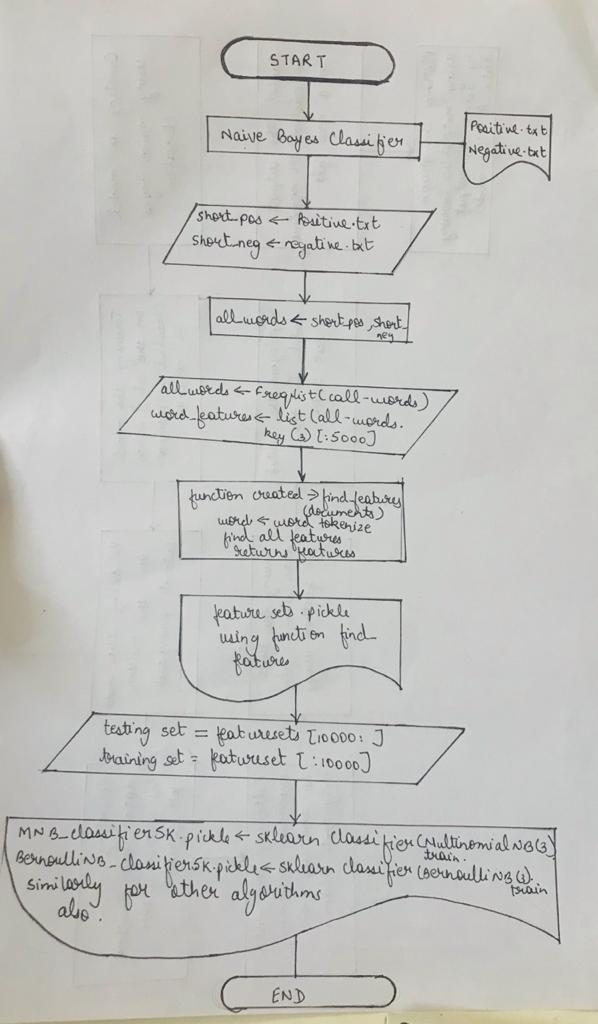 START
Naive Bayes Classifier
Positive.txt
Negative.txt
short_pos ← Positive.txt
short_neg ← negative.txt
all_words ← short_pos, short_
neg
all_words ← FreqList(call-words)
word_features ← list(all-words.
key(s)[:5000]
function created → find_features
(documents)
word ← word tokenize
find all features
returns features
feature sets.pickle
using function find_
features
testing set = featuresets [10000: ]
training set = featureset [:10000]
MNB_classifierSK.pickle ← sklearn classifier (MultinomialNB()).
train.
BernoulliNB_classifierSK.pickle ← sklearn classifier (BernoulliNB()).
train
similarly for other algorithms
also.
END